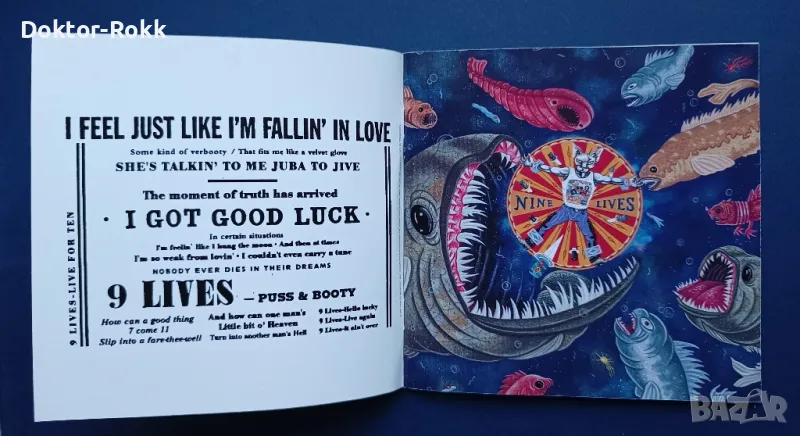 Doktor-Rokk
I FEEL JUST LIKE I'M FALLIN' IN LOVE
Some kind of verbooty / That fits me like a velvet glove
SHE'S TALKIN' TO ME JUBA TO JIVE
The moment of truth has arrived
· I GOT GOOD LUCK ·
In certain situations
I'm feelin' like I hung the moon · And then at times
I'm so weak from lovin' · I couldn't even carry a tune
NOBODY EVER DIES IN THEIR DREAMS
9 LIVES – PUSS & BOOTY
How can a good thing
7 come 11
Slip into a fare-thee-well
And how can one man's
Little bit o' Heaven
Turn into another man's Hell
9 Lives-Hello lucky
9 Lives-Live again
9 Lives-It ain't over
9 LIVES-LIVE FOR TEN
NINE LIVES
BAZAR